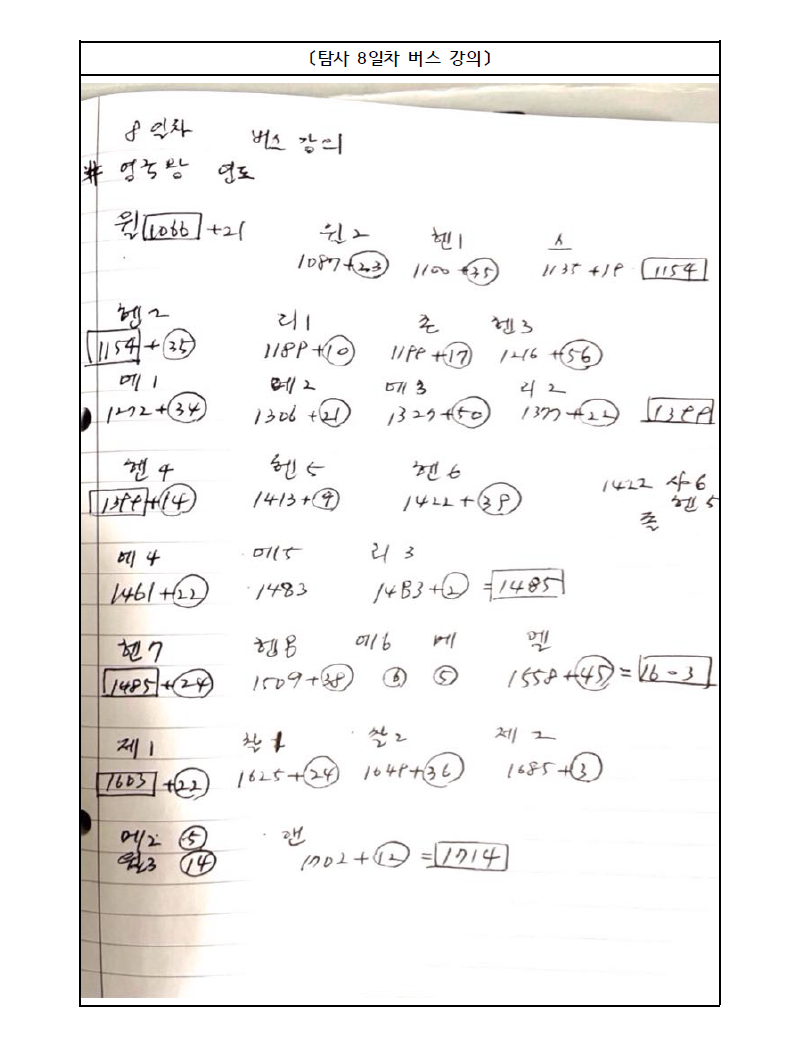 〔탐사 8일차 버스 강의〕
8일차 버스 강의
* 영국왕 연도
윌 1066 +21 윈2 헨1 스
1087+23 1100+35 1135+19 1154
헨2 리1 존 헨3
1154+35 1189+10 1199+17 1216+56
에1 에2 에3 리2
1272+34 1306+21 1327+50 1377+22 1399
헨4 헨5 헨6
1399+14 1413+9 1422+39 1422 샤6
헨5
에4 에5 리3
1461+22 1483 1483+2 =1485
헨7 헨8 에6 메 엘
1485+24 1509+38 6 5 1558+45=16-3
제1 찰1 찰2 제2
1603+22 1625+24 1649+36 1685+3
메2 5 앤
윌3 14 1702+12=1714